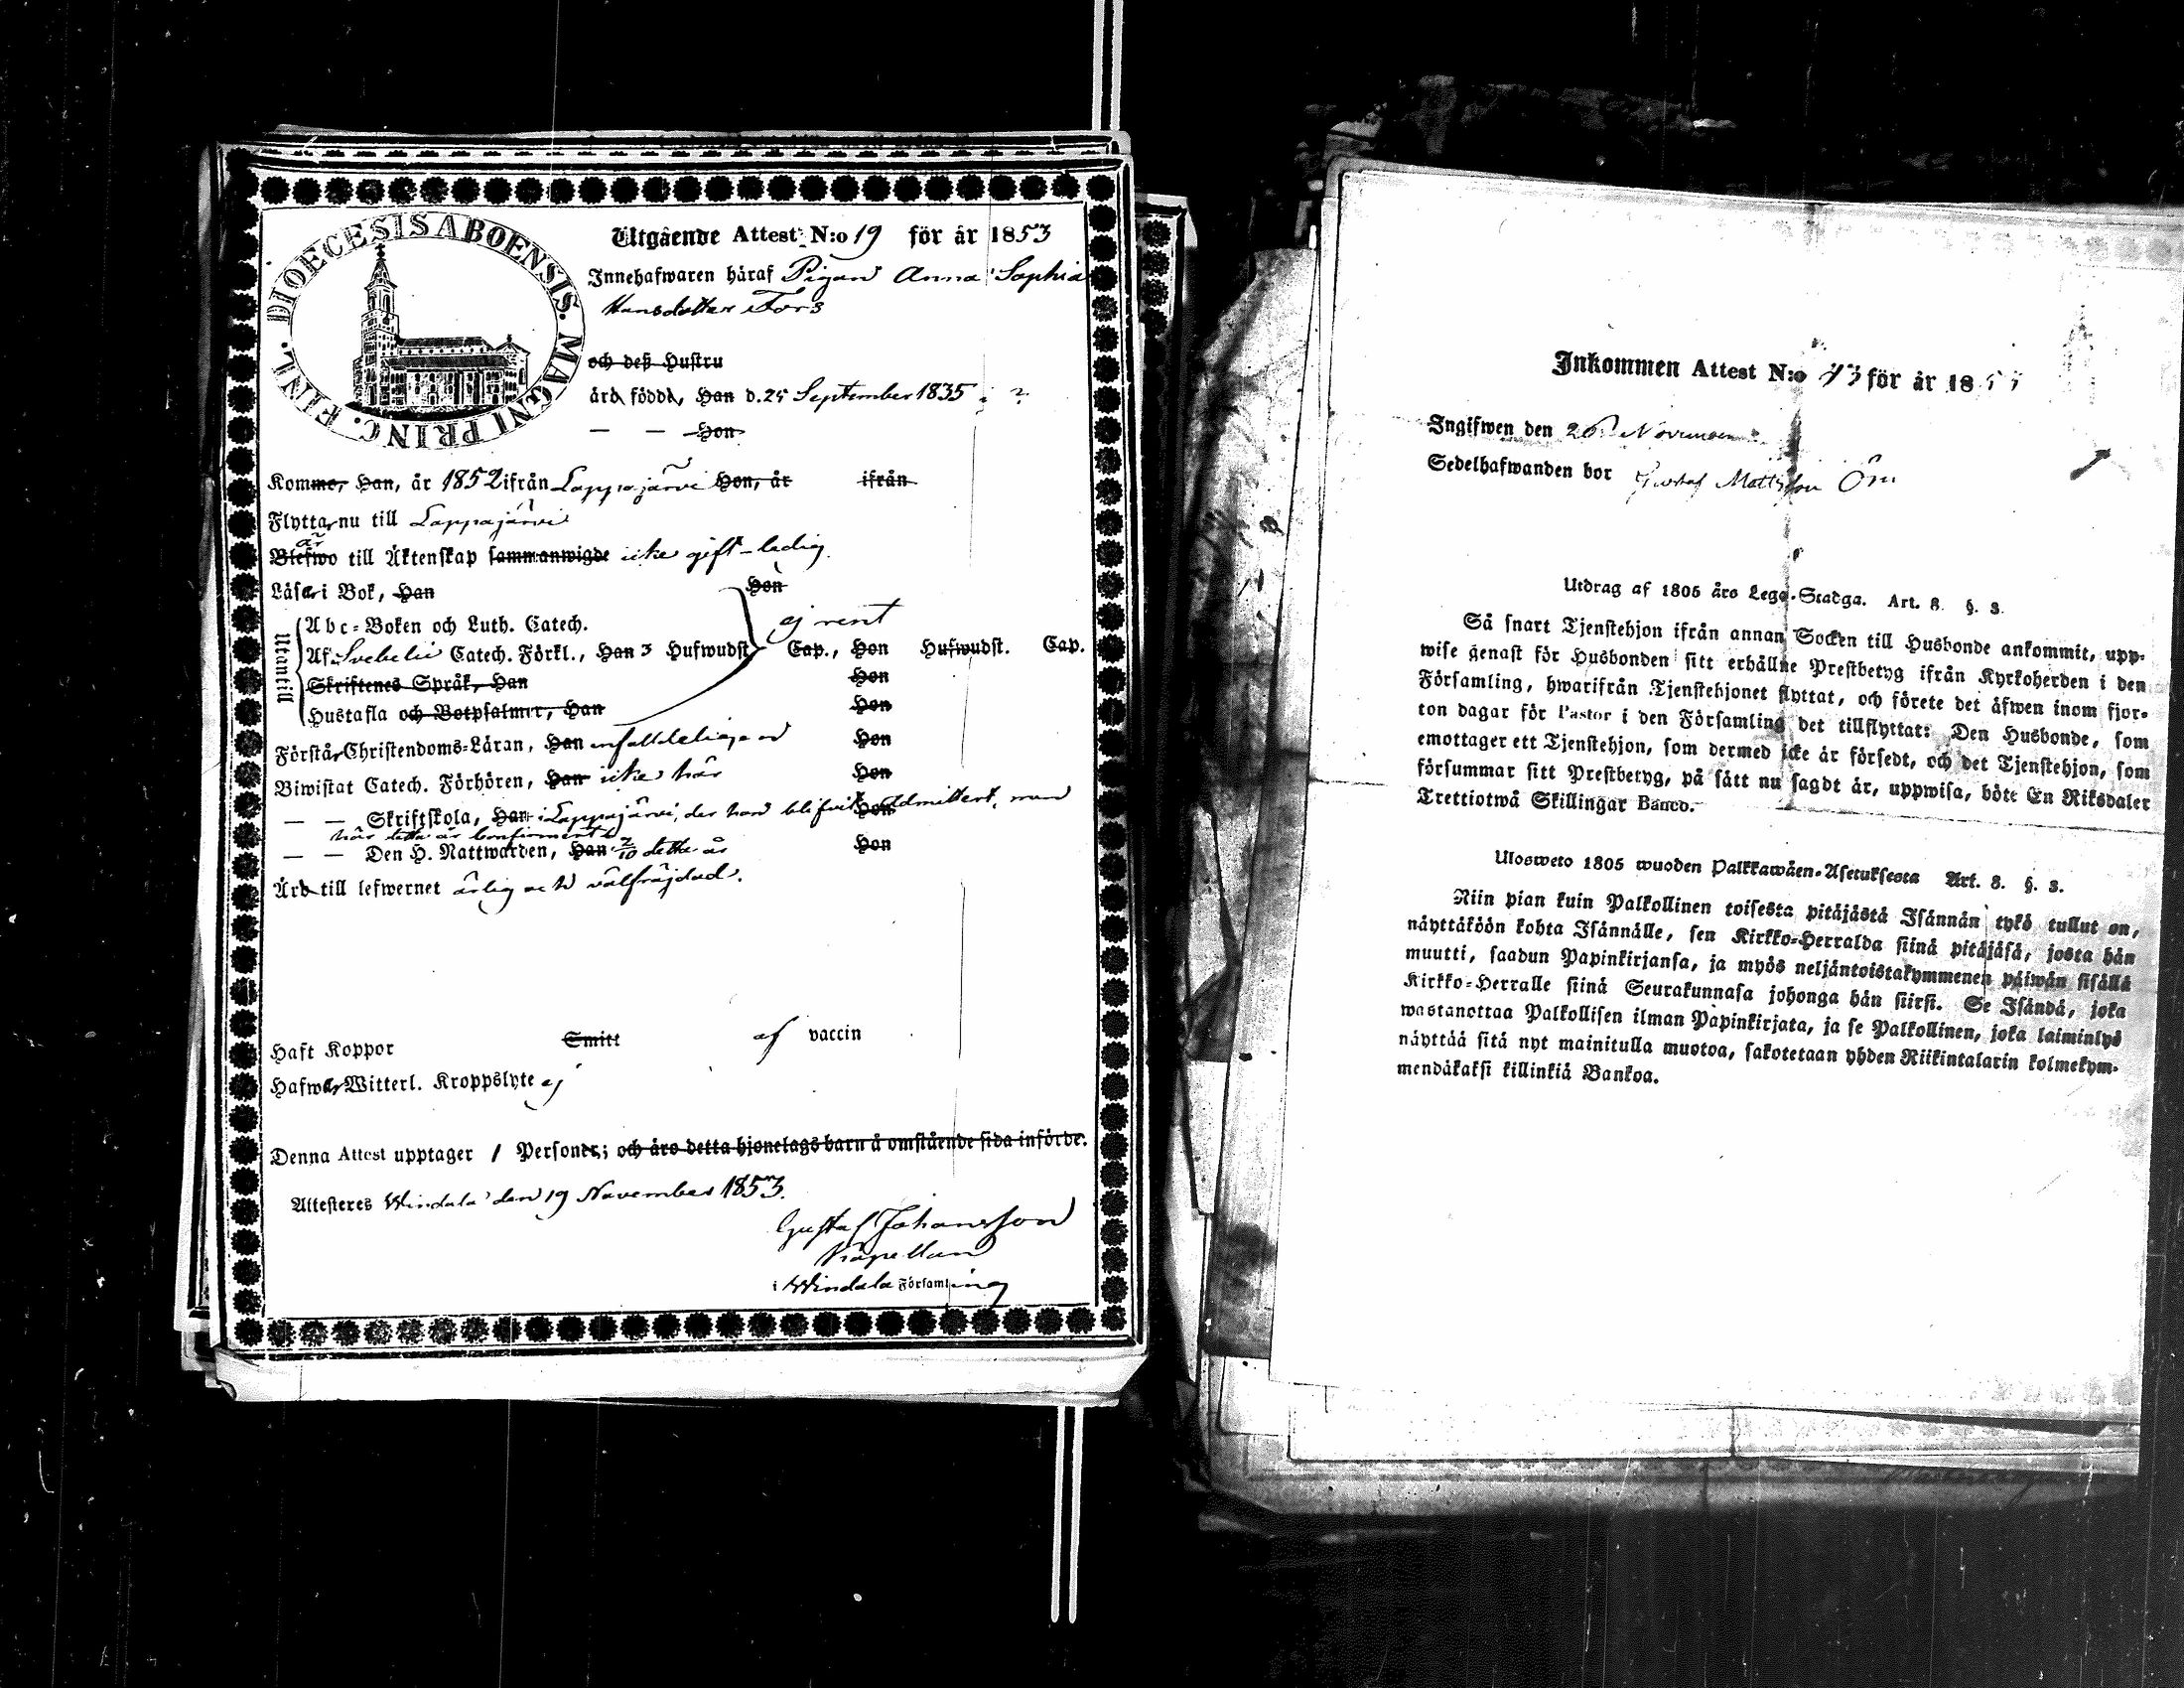 DIOECESIS ABOENSIS. MAGNI PRINC. FINL.
Utgående Attest N:o 19 för år 1853
Innehafwaren häraf Pigan Anna Sophia
Hansdotter Fors
och deß Hustru
äro födde, Han d. 25 September 1835 i ?
— — Hon
Komme, Han, år 1852 ifrån Lappajärvi Hon, år ifrån
Flyttar nu till Lappajärvi
är
Blefwo till Äktenskap sammanwigde icke gift – ledig.
Läser i Bok, Han Hon
Utantill
Abc-Boken och Luth. Catech. ej rent
Af Svebelii Catech. Förkl., Han 3 Hufwudst. Cap., Hon Hufwudst. Cap.
Skriftenes Språk, Han Hon
Hustafla och Botpsalmer, Han Hon
Förstår Christendoms-Läran, Han enfaldeligen Hon
Biwistat Catech. Förhören, Han icke här Hon
— — Skriftskola, Han i Lappajärvi, der hon blifvit admittert, men Hon
här detta år confirmerts
— — Den H. Nattwarden, Han 2/10 detta år Hon
Äro till lefwernet ärlig och välfräjdad.
Haft Koppor Smitt af vaccin
Hafwer Witterl. Kroppslyte ej
Denna Attest upptager 1 Personer; och äro detta hjonelags barn å omstående sida införde.
Attesteres Windala den 19 November 1853.
Gustaf Johansson
Kapellan
i Windala Församling
Inkommen Attest N:o 43 för år 18
Ingifwen den 26 November
Sedelhafwanden bor Gustaf Mattsson
Utdrag af 1805 års Lego-Stadga. Art. 8. §. 3.
Så snart Tjenstehjon ifrån annan Socken till Husbonde ankommit, upp-
wise genast för Husbonden sitt erhållne Prestbetyg ifrån Kyrkoherden i den
Församling, hwarifrån Tjenstehjonet flyttat, och förete det äfwen inom fjor-
ton dagar för Pastor i den Församling det tillflyttat: Den Husbonde, som
emottager ett Tjenstehjon, som dermed icke är försedt, och det Tjenstehjon, som
försummar sitt Prestbetyg, på sätt nu sagdt är, uppwisa, böte En Riksdaler
Trettiotwå Skillingar Banco.
Ulosweto 1805 wuoden Palkkawäen-Asetuksesta Art. 8. §. 3.
Niin pian kuin Palkollinen toisesta pitäjästä Isännän tykö tullut on,
näyttäköön kohta Isännälle, sen Kirkko-Herralda siinä pitäjäsä, josta hän
muutti, saadun Papinkirjansa, ja myös neljäntoistakymmenen päiwän sisällä
Kirkko-Herralle siinä Seurakunnasa johonga hän siirsi. Se Isändä, joka
wastanottaa Palkollisen ilman Papinkirjata, ja se Palkollinen, joka laiminlyö
näyttää sitä nyt mainitulla muotoa, sakotetaan yhden Riikintalarin kolmekym-
mendäkaksi killinkiä Bankoa.